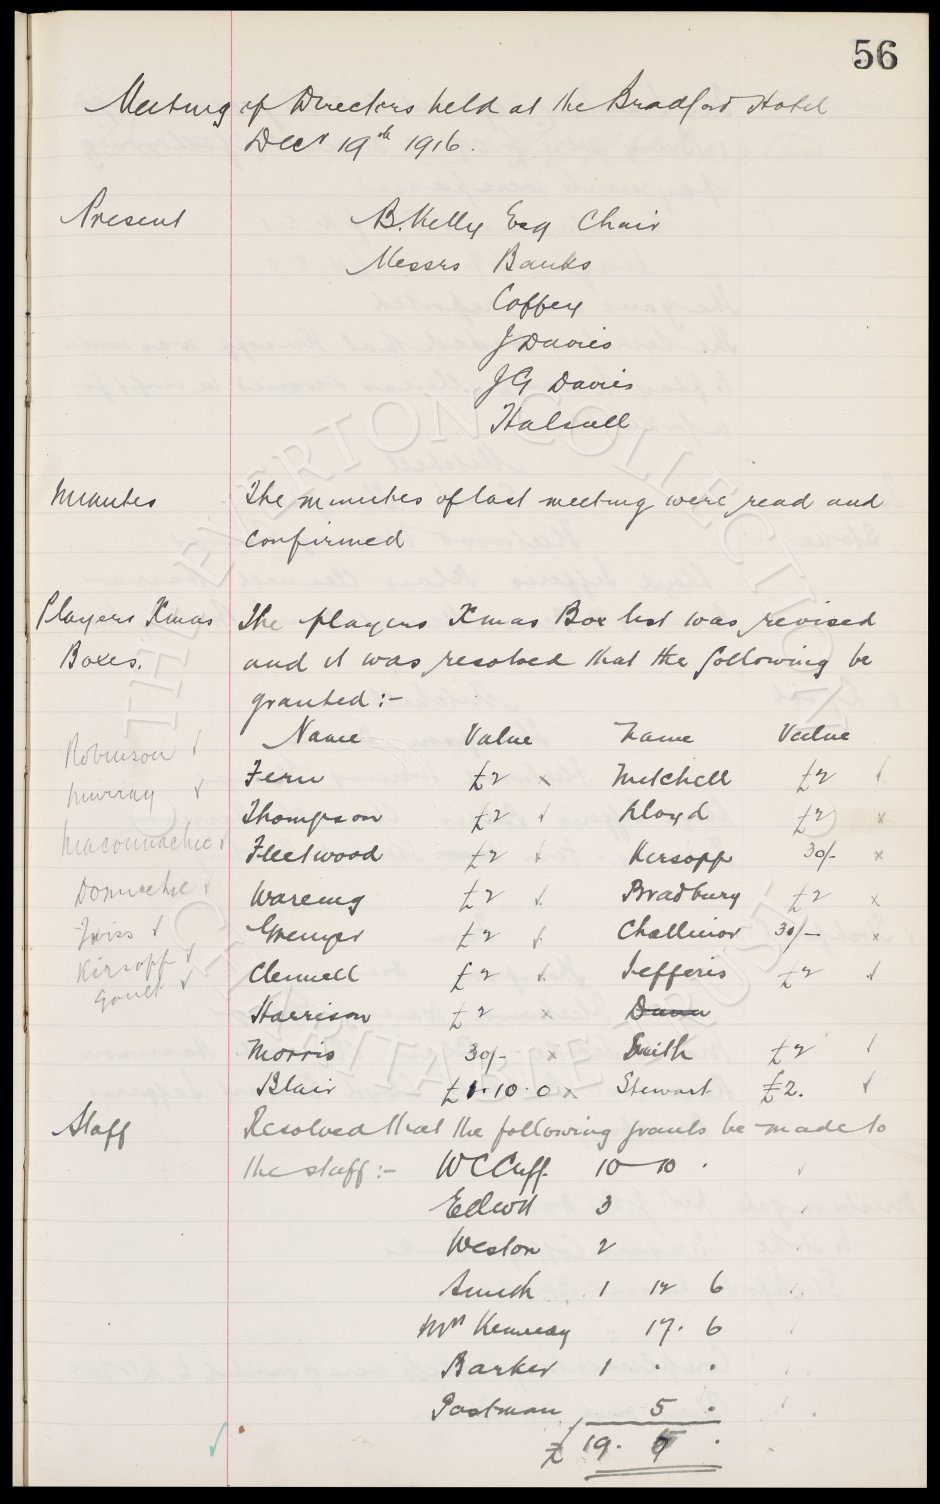 56
Meeting of Directors held at the Bradford Hotel
Decr 19th 1916.
Present B. Kelly Esq Chair
Messrs Banks
Coffey
J Davies
JG Davies
Halsall
Minutes The minutes of last meeting were read and
confirmed
Players Xmas The players Xmas Box list was revised
Boxes. and it was resolved that the following be
granted :-
Name Value Name Value
Robinson ✓
Fern £2 x Mitchell £2 ✓
Murray ✓
Thompson £2 ✓ Lloyd £2 x
Maconnachie ✓
Fleetwood £2 ✓ Kirsopp 30/- x
Donnachie ✓
Wareing £2 ✓ Bradbury £2 x
✓
Grenyer £2 ✓ Challinor 30/- x
Kirsopp ✓
Clennell £2 ✓ Jefferis £2 ✓
Gault ✓
Harrison £2 x Dunn
Morris 30/- x Smith £2 ✓
Blair £1.10.0 x Stewart £2. ✓
Staff Resolved that the following grants be made to
the staff :- W C Cuff 10 10 .
Elliott 3
Weston 2
Smith 1 12 6
Mrs Kennedy 17. 6
Barker 1 . .
Postman 5 .
£ 19. 5 .
THE EVERTON COLLECTION
CHARITABLE TRUST